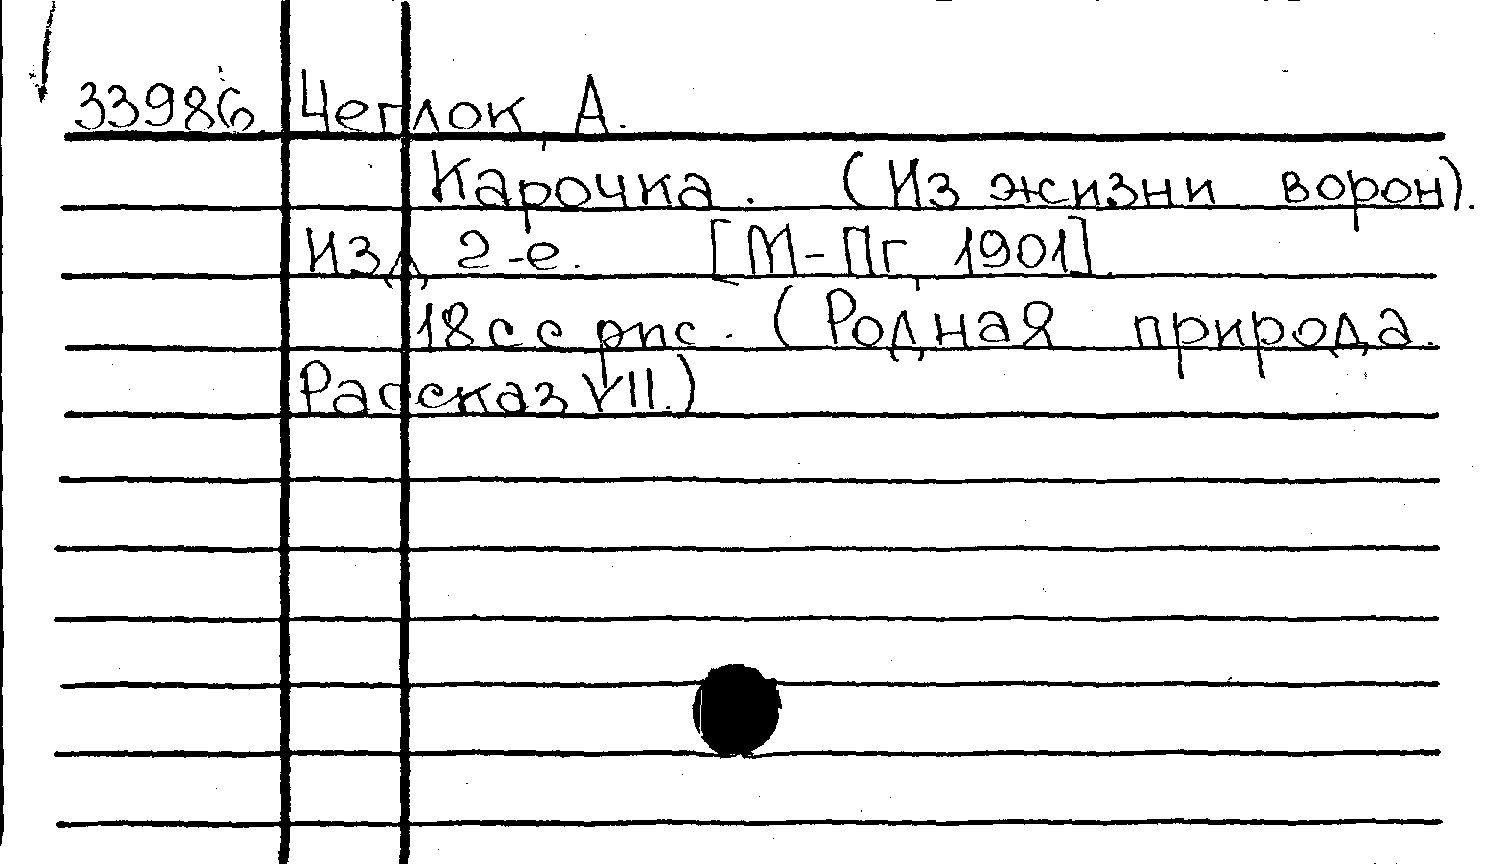 33986 Чеглок, А.
Карочка. (Из жизни ворон).
Изд. 2-е. [М-Пг, 1901]
18 с с рис. (Родная природа.
Рассказ VII.)